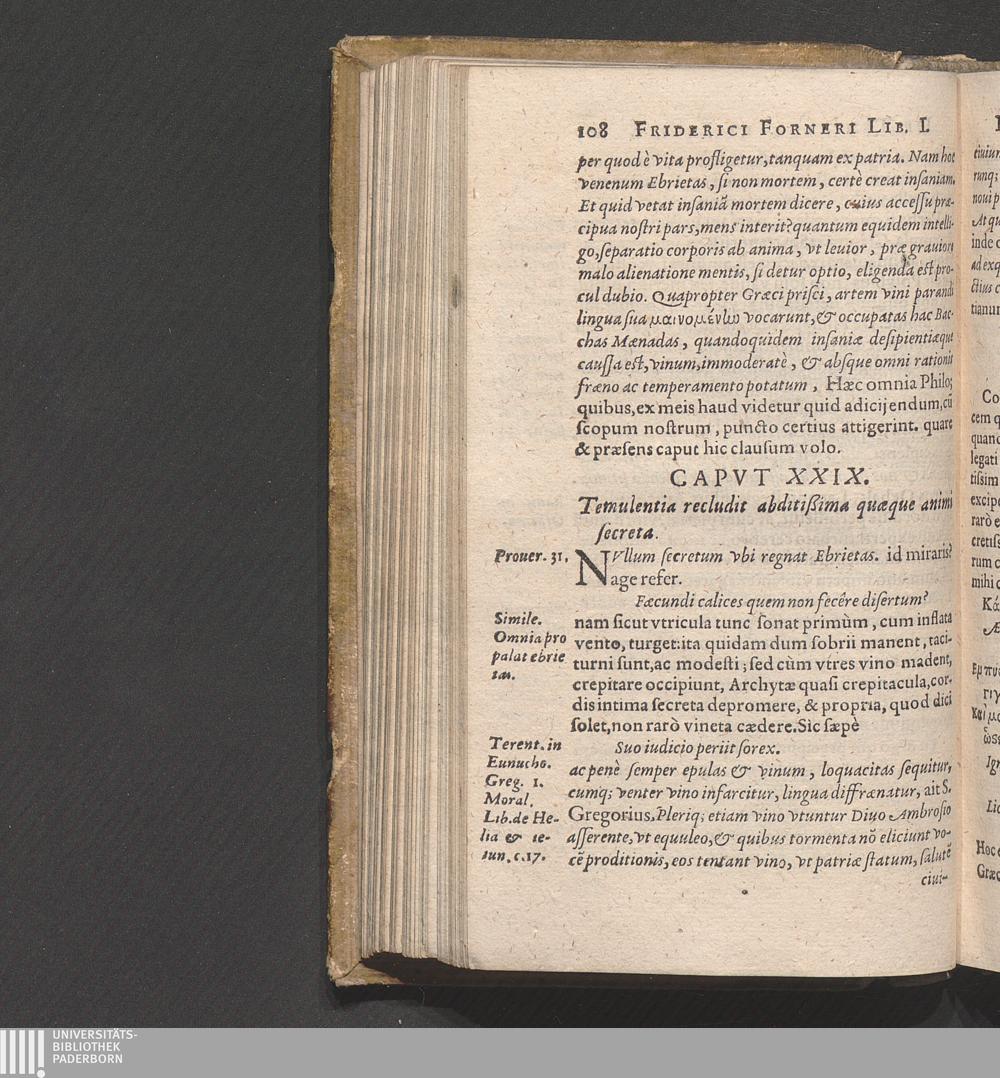 108 FRIDERICI FORNERI LIB. I.
per quod è vita profligetur, tanquam ex patria. Nam hoc
venenum Ebrietas, si non mortem, certè creat insaniam.
Et quid vetat insaniã mortem dicere, cuius accessu præ-
cipua nostri pars, mens interit? quantum equidem intelli-
go, separatio corporis ab anima, vt leuior, præ grauiori
malo alienatione mentis, si detur optio, eligenda est pro-
cul dubio. Quapropter Græci prisci, artem vini parandi
lingua sua μαινομένην vocarunt, & occupatas hac Bac-
chas Mænadas, quandoquidem insaniæ desipientiæque
caussa est, vinum, immoderatè, & absque omni rationis
fræno ac temperamento potatum, Hæc omnia Philo;
quibus, ex meis haud videtur quid adicijendum, cũ
scopum nostrum, puncto certius attigerint. quare
& præsens caput hic clausum volo.
CAPVT XXIX.
Temulentia recludit abditißima quæque animi
secreta.
Prouer. 31.
NVllum secretum vbi regnat Ebrietas. id miraris?
age refer.
Fæcundi calices quem non fecêre disertum?
Simile.
Omnia pro
palat ebrie
tas.
nam sicut vtricula tunc sonat primùm, cum inflata
vento, turget: ita quidam dum sobrii manent, taci-
turni sunt, ac modesti; sed cùm vtres vino madent,
crepitare occipiunt, Archytæ quasi crepitacula, cor-
dis intima secreta depromere, & propria, quod dici
solet, non rarò vineta cædere. Sic sæpè
Terent. in
Eunucho.
Greg. 1.
Moral.
Lib. de He-
lia & ie-
iun. c. 17.
Suo iudicio periit sorex.
ac penè semper epulas & vinum, loquacitas sequitur,
cumq; venter vino infarcitur, lingua diffrænatur, ait S.
Gregorius. Pleriq; etiam vino vtuntur Diuo Ambrosio
asserente, vt equuleo, & quibus tormenta nõ eliciunt vo-
cẽ proditionis, eos tentant vino, vt patriæ statum, salutẽ
ciui-
UNIVERSITÄTS-
BIBLIOTHEK
PADERBORN